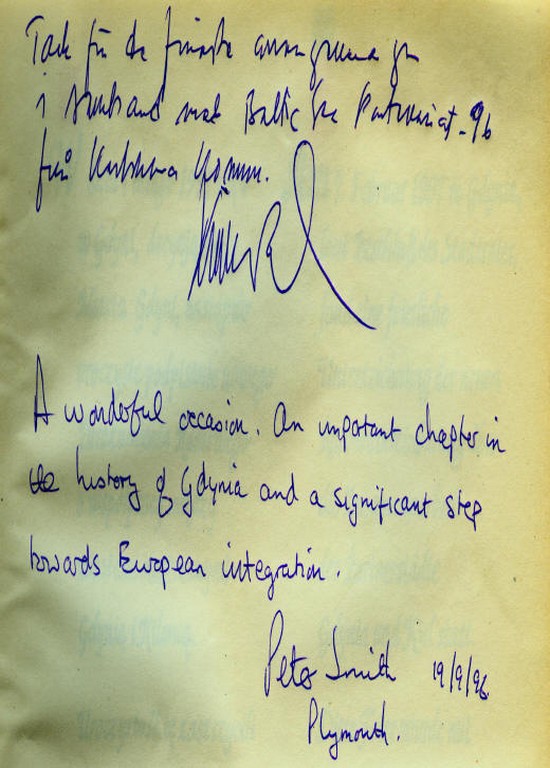 Tack för de finaste arrangemangen
i samband med Baltic Sea Partenariat -96
från Karlskrona kommun.
A wonderful occasion. An important chapter in
the history of Gdynia and a significant step
towards European integration.
Peter Smith 19/9/96
Plymouth.